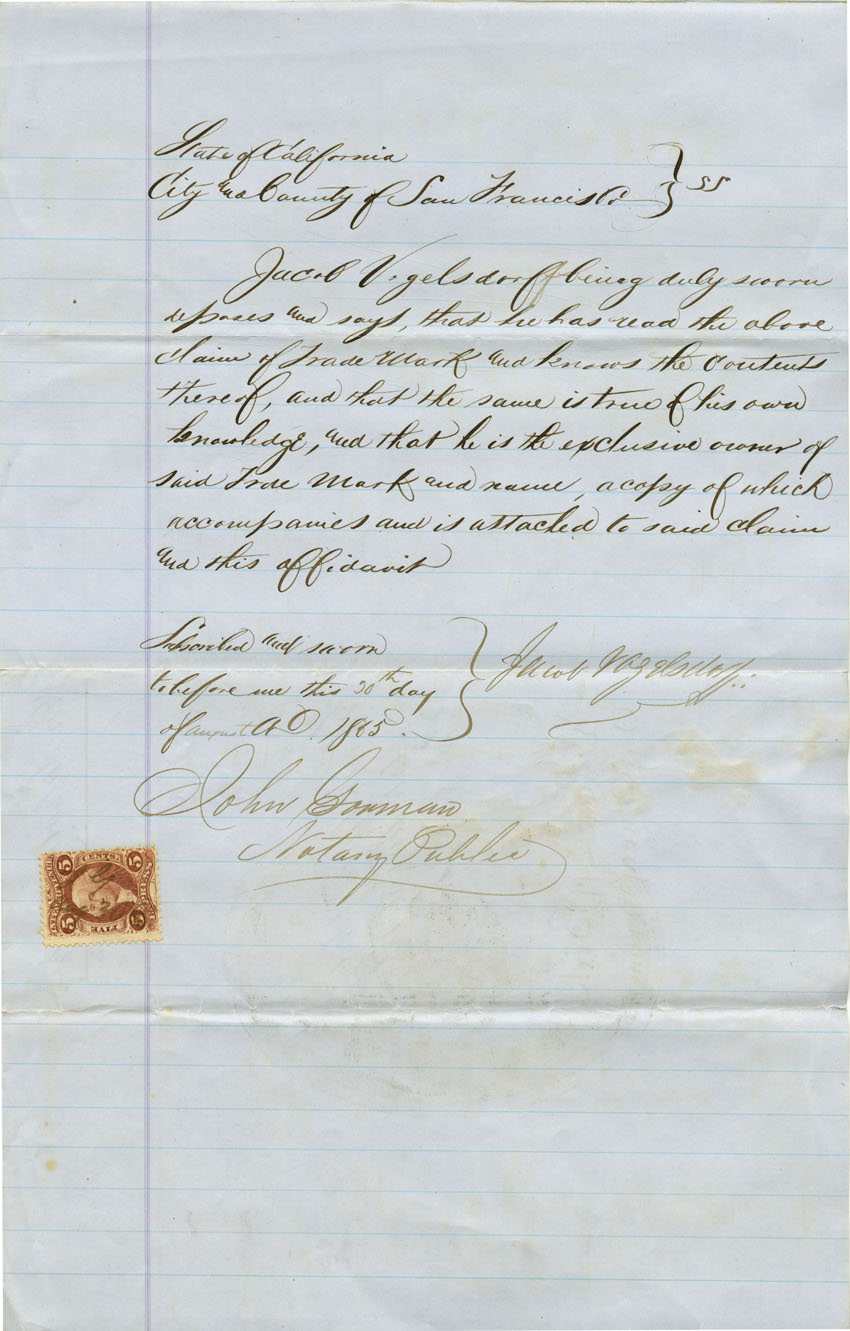 State of California
City and County of San Francisco } SS
Jacob Vogelsdorff being duly sworn
deposes and says, that he has read the above
claim of Trade Mark and knows the contents
thereof, and that the same is true of his own
knowledge, and that he is the exclusive owner of
said Trade Mark and name, a copy of which
accompanies and is attached to said claim
and this affidavit
Subscribed and sworn
to before me this 30th day
of august AD. 1865.
Jacob Vogelsdorff
John Gorman
Notary Public
5 CENTS 5
EXPRESS
5 FIVE 5